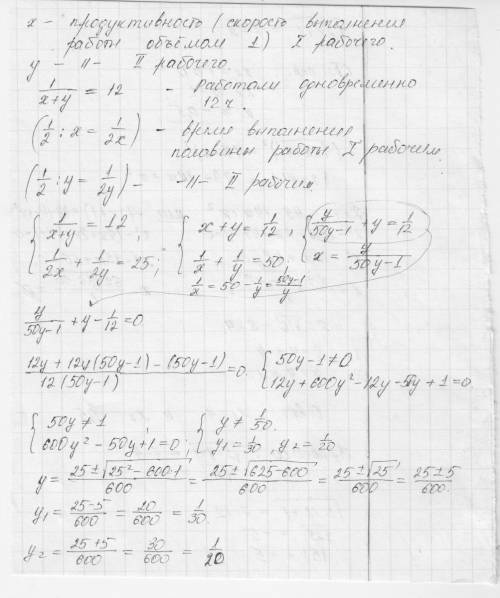 x – продуктивность (скорость выполнения
работы объёмом 1) I рабочего.
y – –||– II рабочего.
1/(x+y) = 12 – Работали одновременно
12 ч.
(1/2 : x = 1/2x) – время выполнения
половины работы I рабочим.
(1/2 : y = 1/2y) – –||– II рабочим.
{ 1/(x+y) = 12, { x + y = 1/12, { y/(50y-1) + y = 1/12
{ 1/2x + 1/2y = 25; { 1/x + 1/y = 50, { x = y/(50y-1)
1/x = 50 - 1/y = (50y-1)/y
y/(50y-1) + y - 1/12 = 0.
(12y + 12y(50y-1) - (50y-1))/(12(50y-1)) = 0. { 50y-1 ≠ 0
{ 12y + 600y² - 12y - 50y + 1 = 0
{ 50y ≠ 1, { y ≠ 1/50.
{ 600y² - 50y + 1 = 0; { y₁ = 1/30, y₂ = 1/20
y = (25 ± √(25² - 600·1))/600 = (25 ± √(625-600))/600 = (25 ± √25)/600 = (25 ± 5)/600.
y₁ = (25-5)/600 = 20/600 = 1/30.
y₂ = (25+5)/600 = 30/600 = 1/20